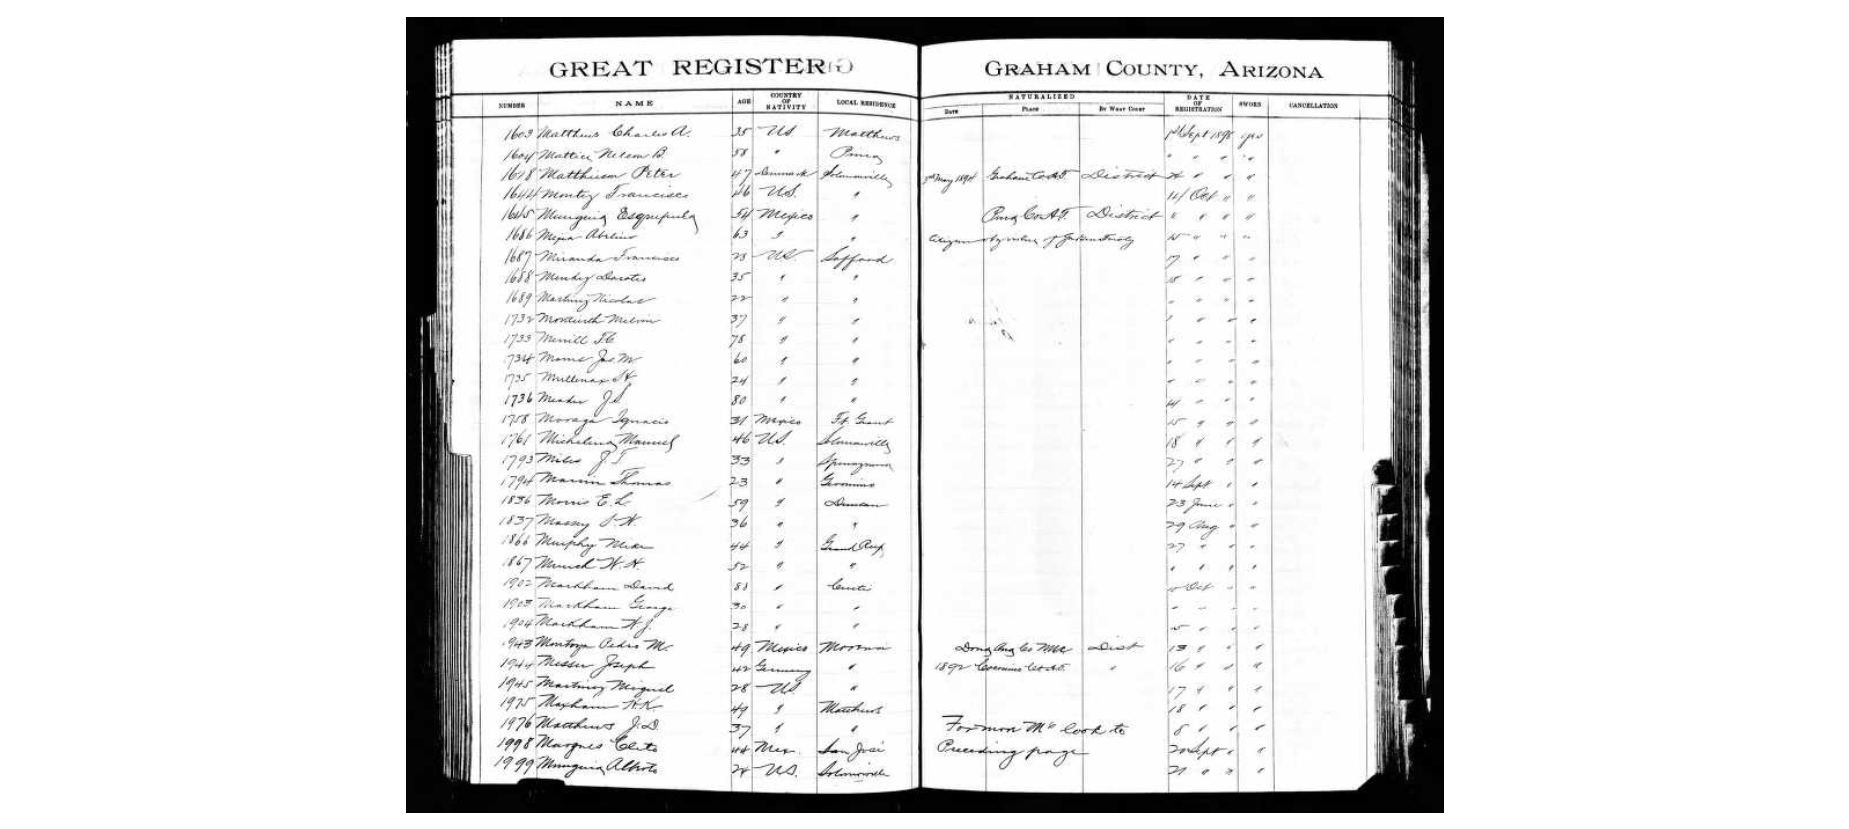 GREAT REGISTER
GRAHAM COUNTY, ARIZONA
NUMBER NAME AGE COUNTRY OF NATIVITY LOCAL RESIDENCE NATURALIZED Date Place By What Court DATE OF REGISTRATION SWORN CANCELLATION
1603 Matthews Charles A. 35 US Matthews 1st Sept 1898 yes
1604 Mattice Nelson B. 58 " Pima " " " "
1618 Matthieson Peter 47 Denmark Solomonville May 1894 Graham Co A.T. District " " "
1644 Montez Francisco 46 US. " 14 Oct " "
1645 Munguia Esquipula 54 Mexico " Pima Co A.T. District " " " "
1686 Mejia 63 " " Citizen by virtue of Gadsden Treaty 15 " " "
1687 Miranda Francisco 23 US Safford 17 " " "
1688 Mendez 35 " " 18 " " "
1689 Martinez Nicolas 22 " " " " " "
1732 Melvin 37 " " " " " "
1733 Merrill 78 " " " " " "
1734 Jas. M 60 " " " " " "
1735 Mullenax 24 " " " " " "
1736 J.S. 80 " " 14 " " "
1758 Moraga Ignacio 31 Mexico Ft. Grant 15 " " "
1761 Michelena Manuel 46 US. Solomonville 18 " " "
1793 Miles J T 33 " 27 " " "
1794 Thomas 23 " Geronimo 14 Sept " "
1836 Morris E. L. 59 " Duncan 23 June " "
1837 36 " " 29 Aug " "
1866 Murphy Mike 44 " 27 " " "
1867 W. H. 52 " " " " " "
1902 Markham David " Curtis Oct " "
1903 Markham George 30 " " " " " "
1904 Markham W. J. 28 " " 15 " " "
1943 Montoya Pedro M. 49 Mexico Morenci Dona Ana Co Dist 13 " " "
1944 Messer Joseph 42 Germany " 1892 " 16 " " "
1945 Martinez Miguel 28 US " 17 " " "
1975 Maxham H.K. 49 " Matthews 18 " " "
1976 Matthews J.D. 37 " " For more Ms look to 8 " " "
1998 Marques 44 Mex. San José Preceding page 20 Sept " "
1999 Munguia Alberto US. Solomonville 21 " " "